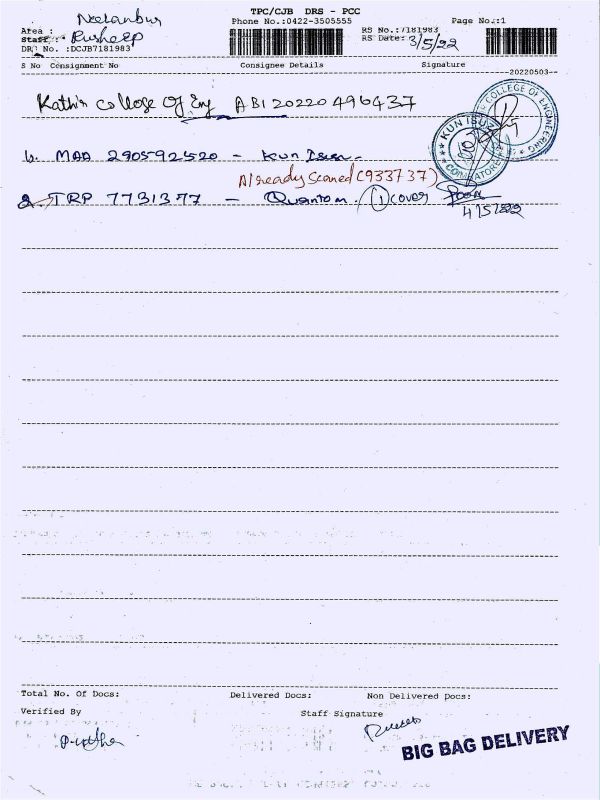 TPC/CJB DRS - PCC
Phone No.:0422-3505555
Page No.:1
Area : Neelanbur
Staff : Pusheep
RS No.:7181983
RS Date: 3/5/22
DRS No. :DCJB7181983
S No Consignment No Consignee Details Signature
20220503
Kathir College Of Eng ABI 20220496437
COLLEGE OF ENGINEERING
KUN ISUZU
COIMBATORE
1. MAA 290592520 - Kun Isuzu
Already Scaned (933737)
2. TRP 7731377 - Quantom. 1 cover
4/5/222
Total No. Of Docs: Delivered Docs: Non Delivered Docs:
Verified By Staff Signature
BIG BAG DELIVERY